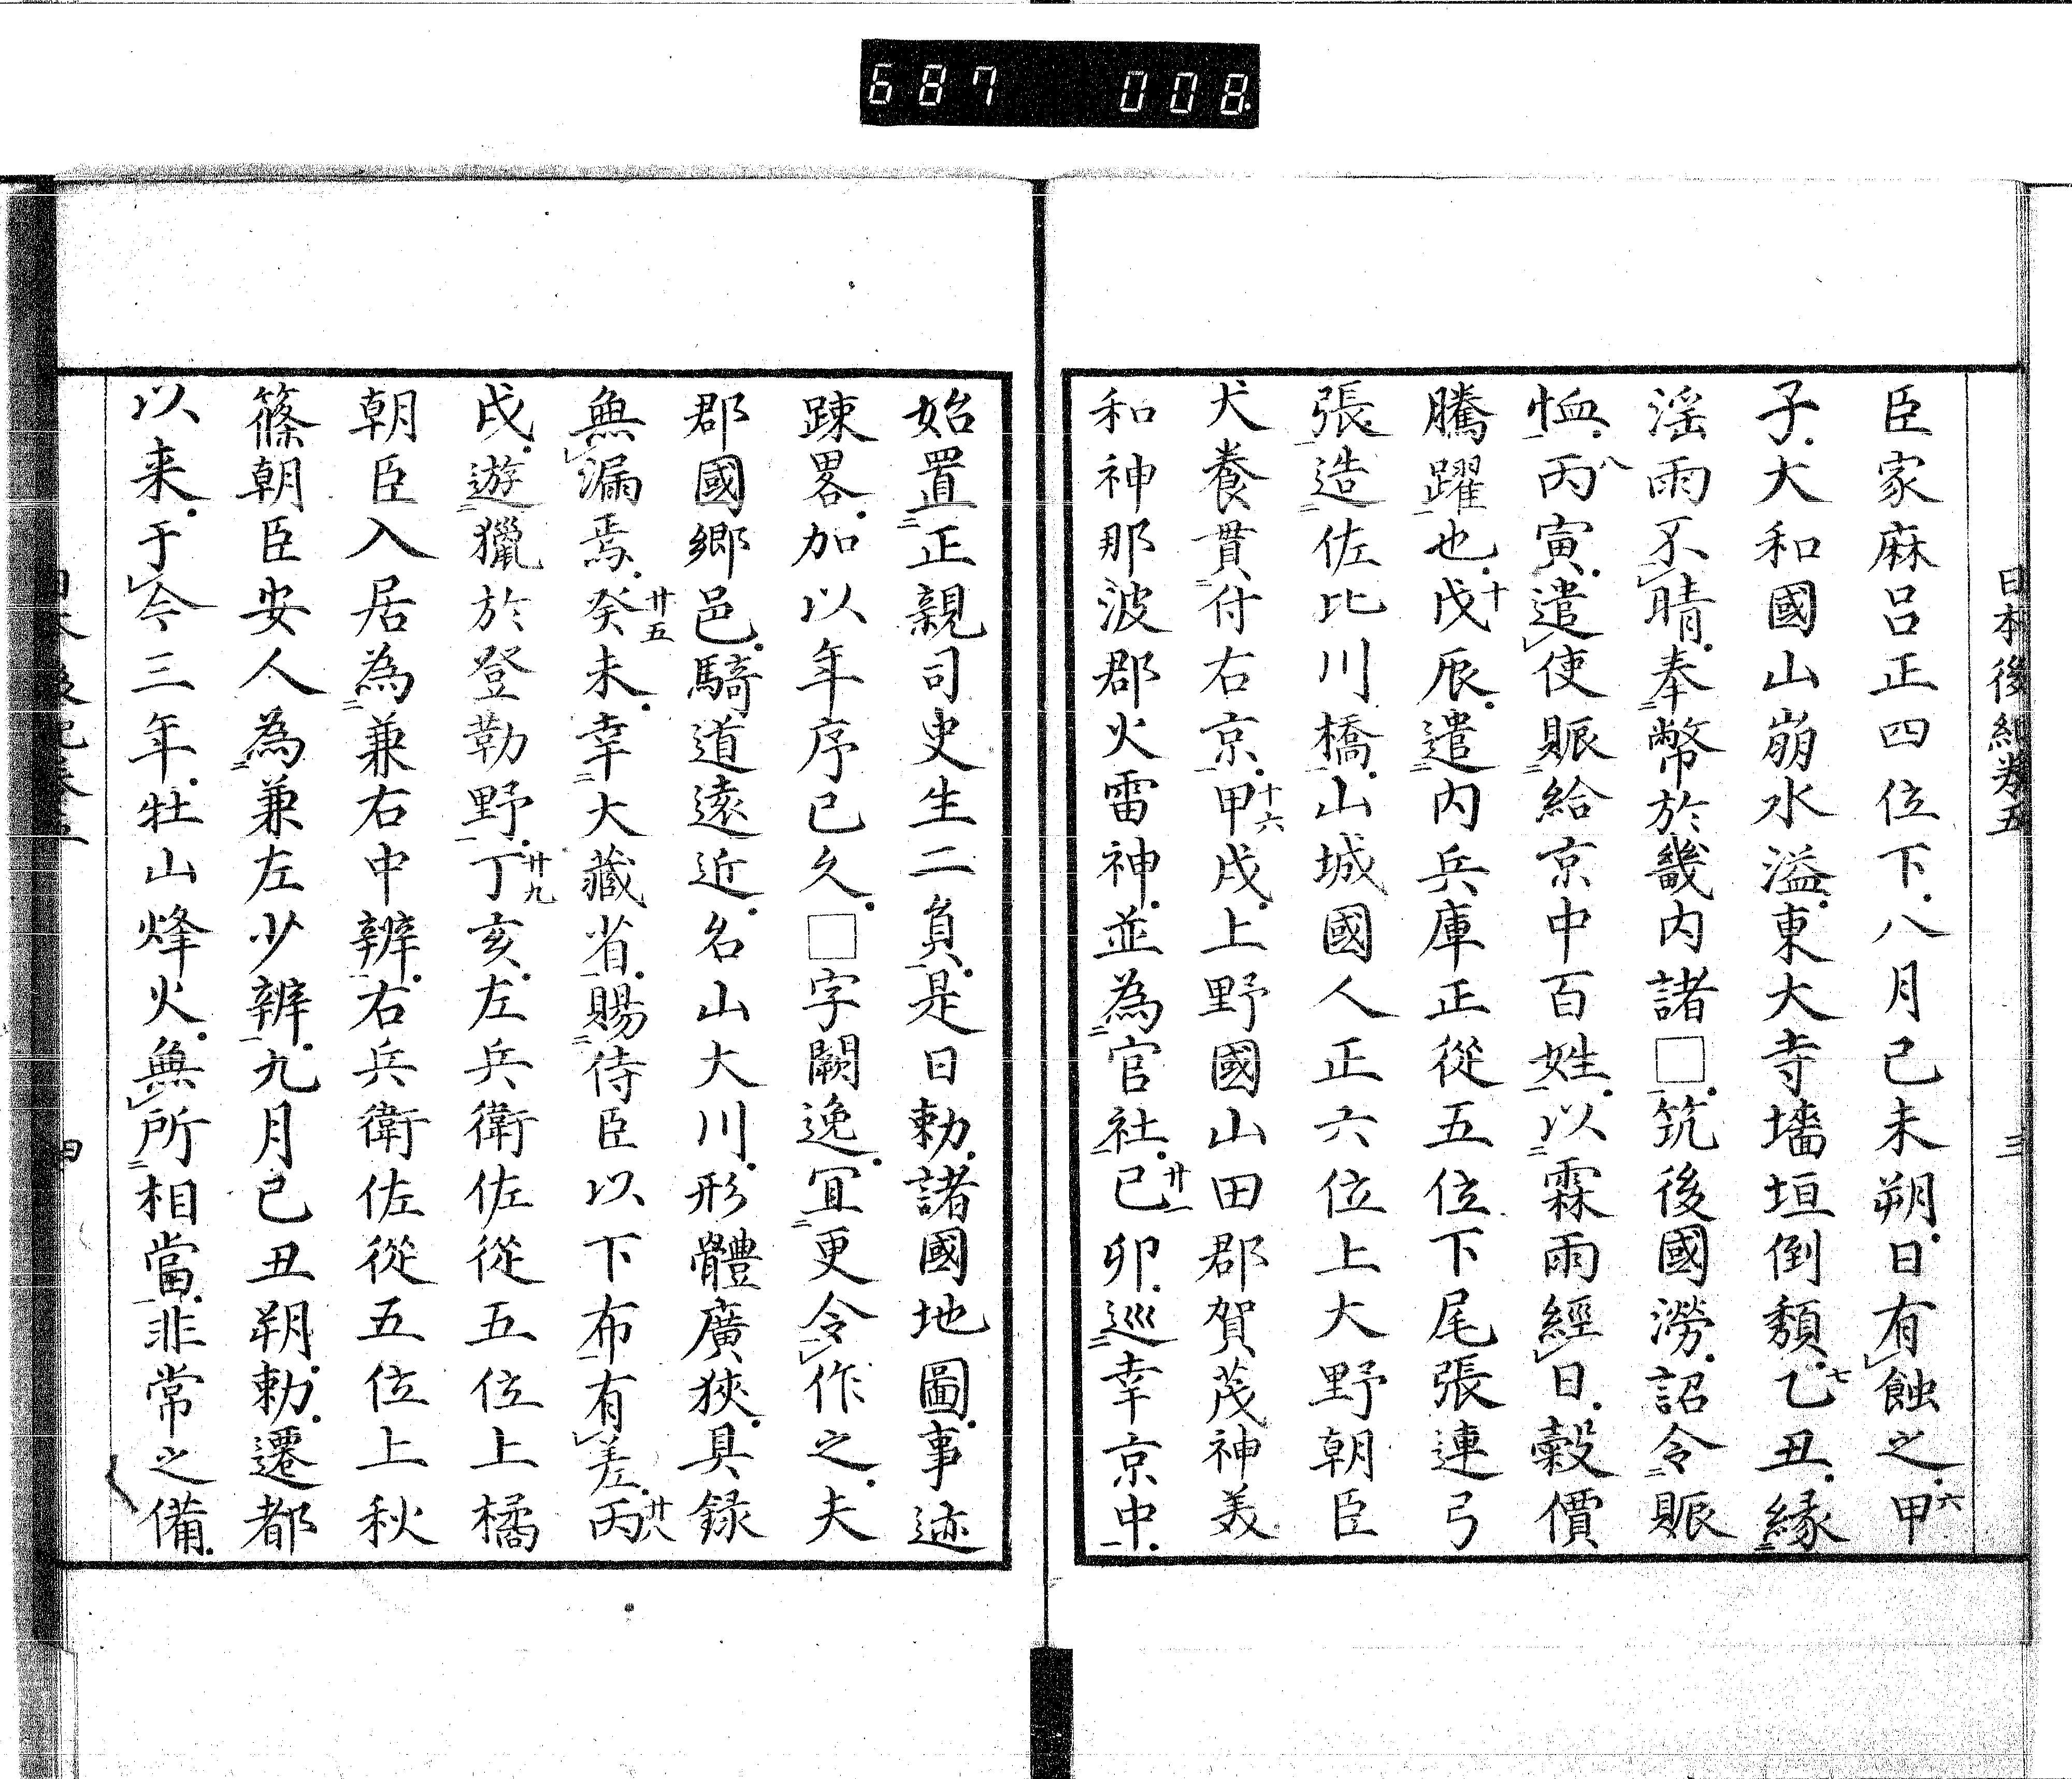 687 008
日本後紀卷五 三
臣家麻呂正四位下八月己未朔日有蝕之甲六
子大和國山崩水溢東大寺墻垣倒頹乙七丑緣
淫雨不晴奉幣於畿内諸□筑後國澇詔令賑
恤丙八寅遣使賑給京中百姓以霖雨經日穀價
騰躍也戊十辰遣内兵庫正從五位下尾張連弓
張造佐比川橋山城國人正六位上大野朝臣
犬養貫付右京甲十六戌上野國山田郡賀茂神美
和神那波郡火雷神並為官社己廿一卯巡幸京中
始置正親司史生二負是日勅諸國地圖事迹
踈畧加以年序已久□字闕逸冝更令作之夫
郡國鄉邑騎道遠近名山大川形體廣狹具録
無漏焉癸廿五未幸大藏省賜侍臣以下布有差丙廿八
戌遊獵於登勒野丁廿九亥左兵衛佐從五位上橘
朝臣入居為兼右中辨右兵衛佐從五位上秋
篠朝臣安人為兼左少辨九月己丑朔勅遷都
以来于今三年牡山烽火無所相當非常之備
四